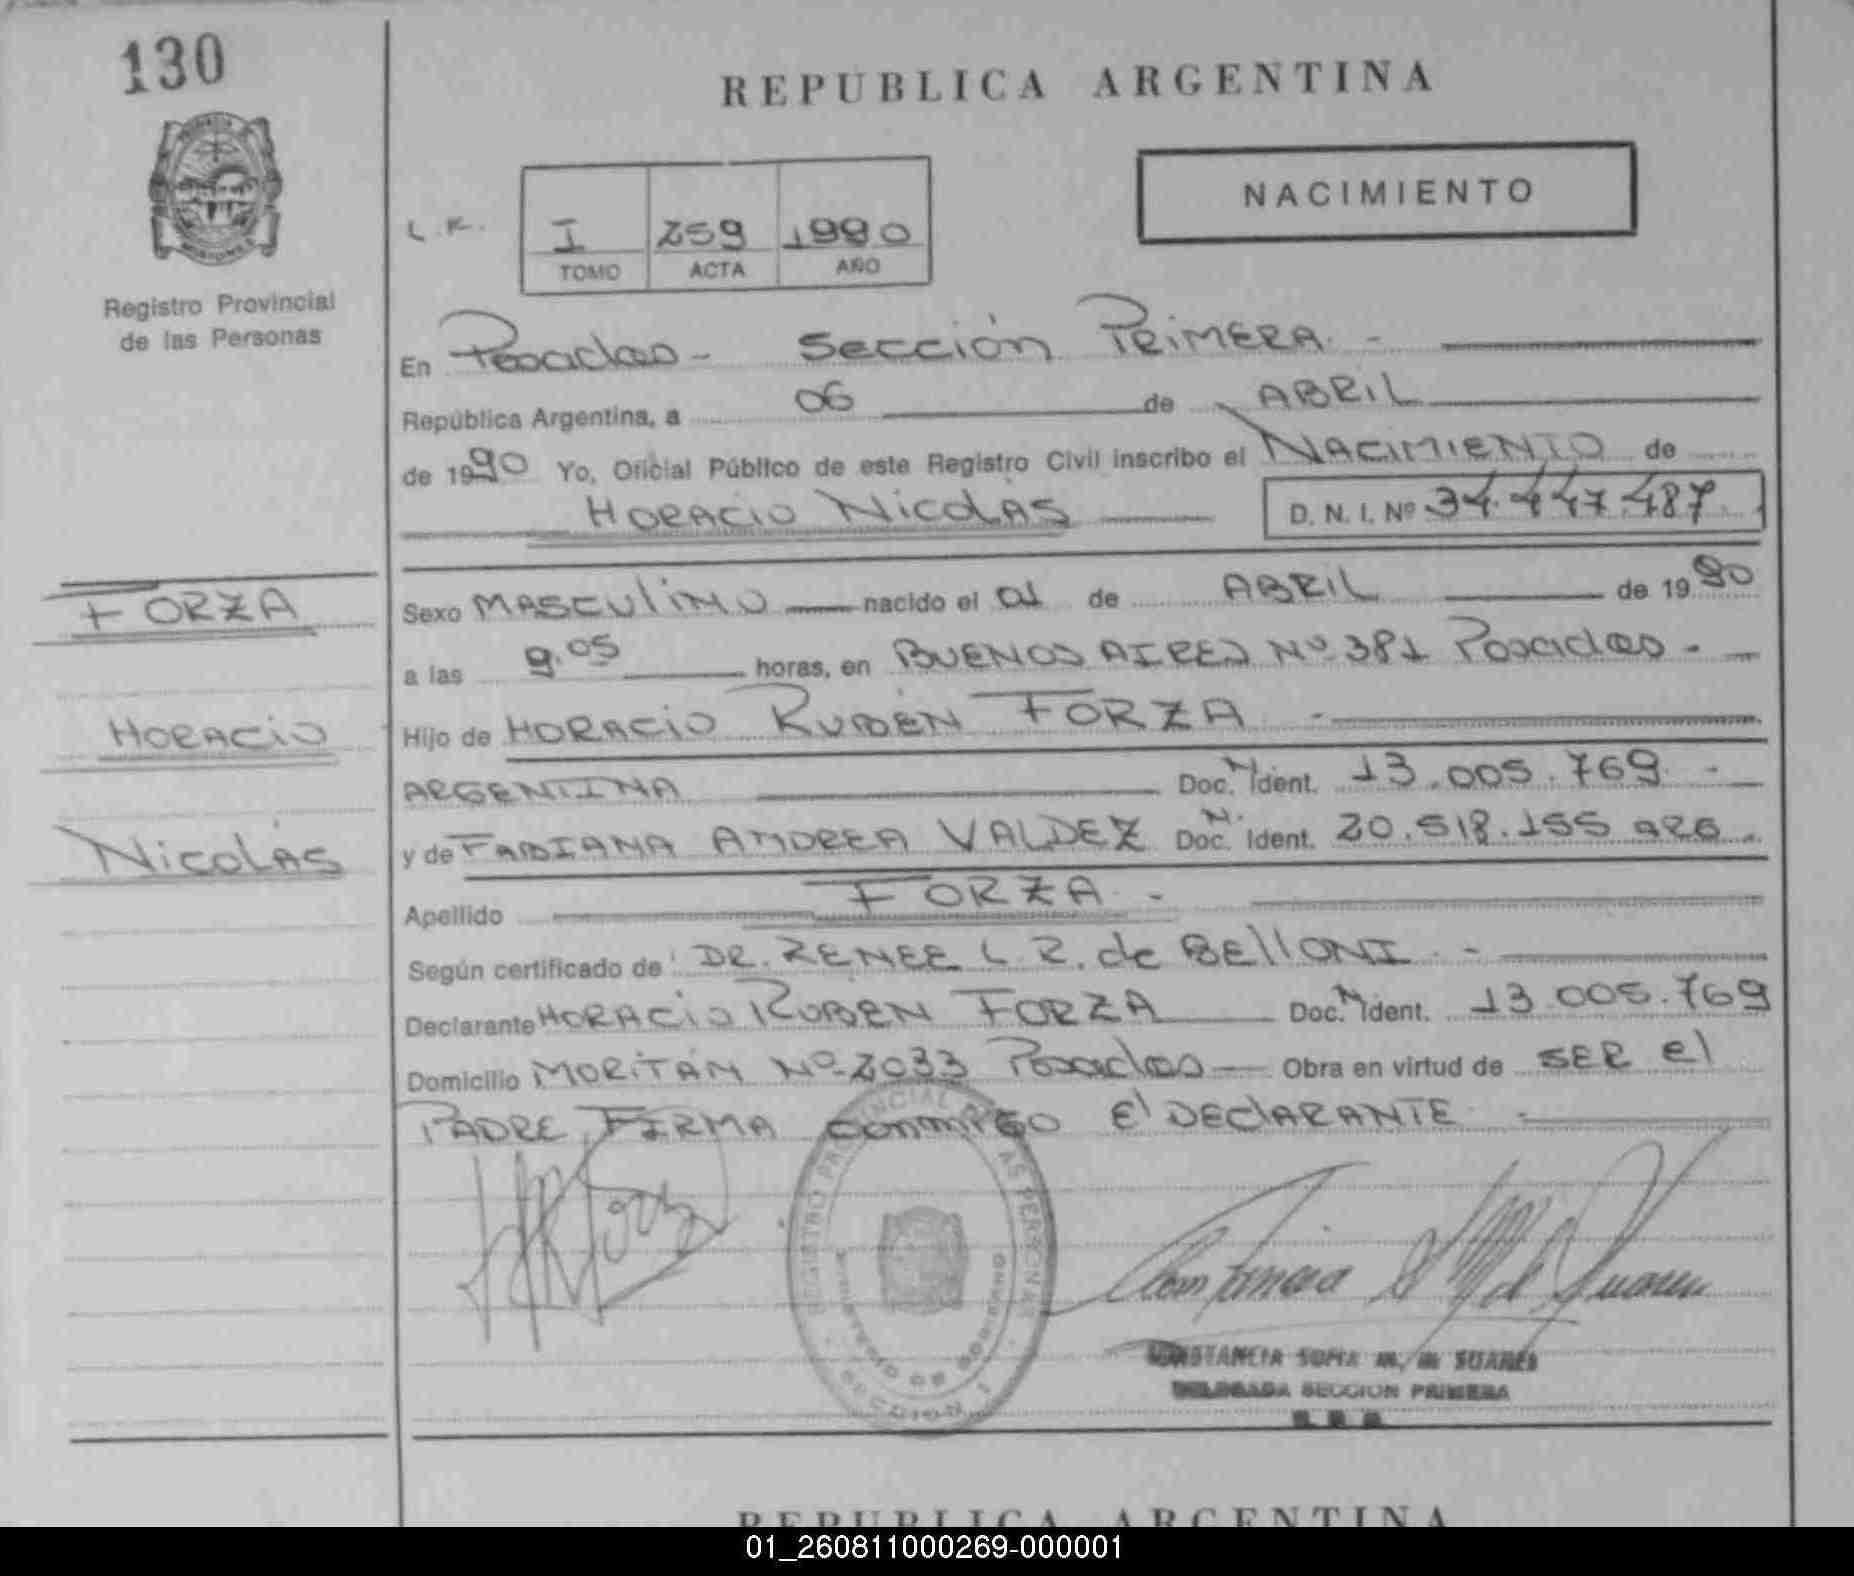 130
REPUBLICA ARGENTINA
NACIMIENTO
L.R. I 259 1990
TOMO ACTA AÑO
Registro Provincial
de las Personas
En Posadas - Sección Primera. -
República Argentina, a 06 de ABRIL
de 1990 Yo, Oficial Público de este Registro Civil inscribo el NACIMIENTO de
HORACIO NICOLAS D. N. I. Nº 34.447.487.
FORZA
Sexo MASCULINO nacido el 01 de ABRIL de 1990
a las 9.05 horas, en BUENOS AIRES Nº 381 Posadas. -
HORACIO
Hijo de HORACIO RUBEN FORZA -
ARGENTINA Doc. N. Ident. 13.005.769. -
NICOLAS
y de FABIANA ANDREA VALDEZ Doc. N. Ident. 20.518.155 ARG.
Apellido FORZA -
Según certificado de DR. RENEE L. R. de BELLONI. -
Declarante HORACIO RUBEN FORZA Doc. N. Ident. 13.005.769
Domicilio MORITAN Nº 2033 Posadas Obra en virtud de SER el
PADRE, FIRMA conmigo El DECLARANTE. -
REGISTRO PROVINCIAL DE LAS PERSONAS
MINISTERIO DE GOBIERNO
SECCION 1
CONSTANCIA SOFIA M. M. SUARES
DELEGADA SECCION PRIMERA
REPUBLICA ARGENTINA
01_260811000269-000001